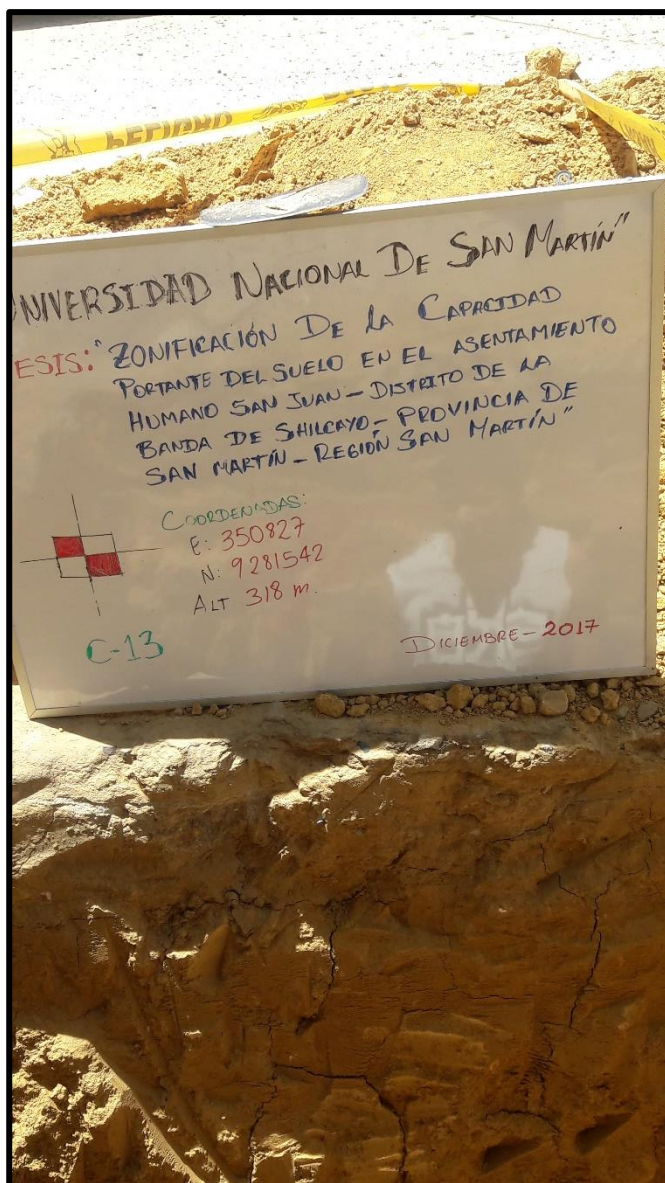 PELIGRO
UNIVERSIDAD NACIONAL DE SAN MARTÍN"
ESIS: "ZONIFICACIÓN DE LA CAPACIDAD
PORTANTE DEL SUELO EN EL ASENTAMIENTO
HUMANO SAN JUAN - DISTRITO DE LA
BANDA DE SHILCAYO - PROVINCIA DE
SAN MARTÍN - REGIÓN SAN MARTÍN"
COORDENADAS:
E: 350827
N: 9281542
ALT 318 m.
C-13
DICIEMBRE - 2017